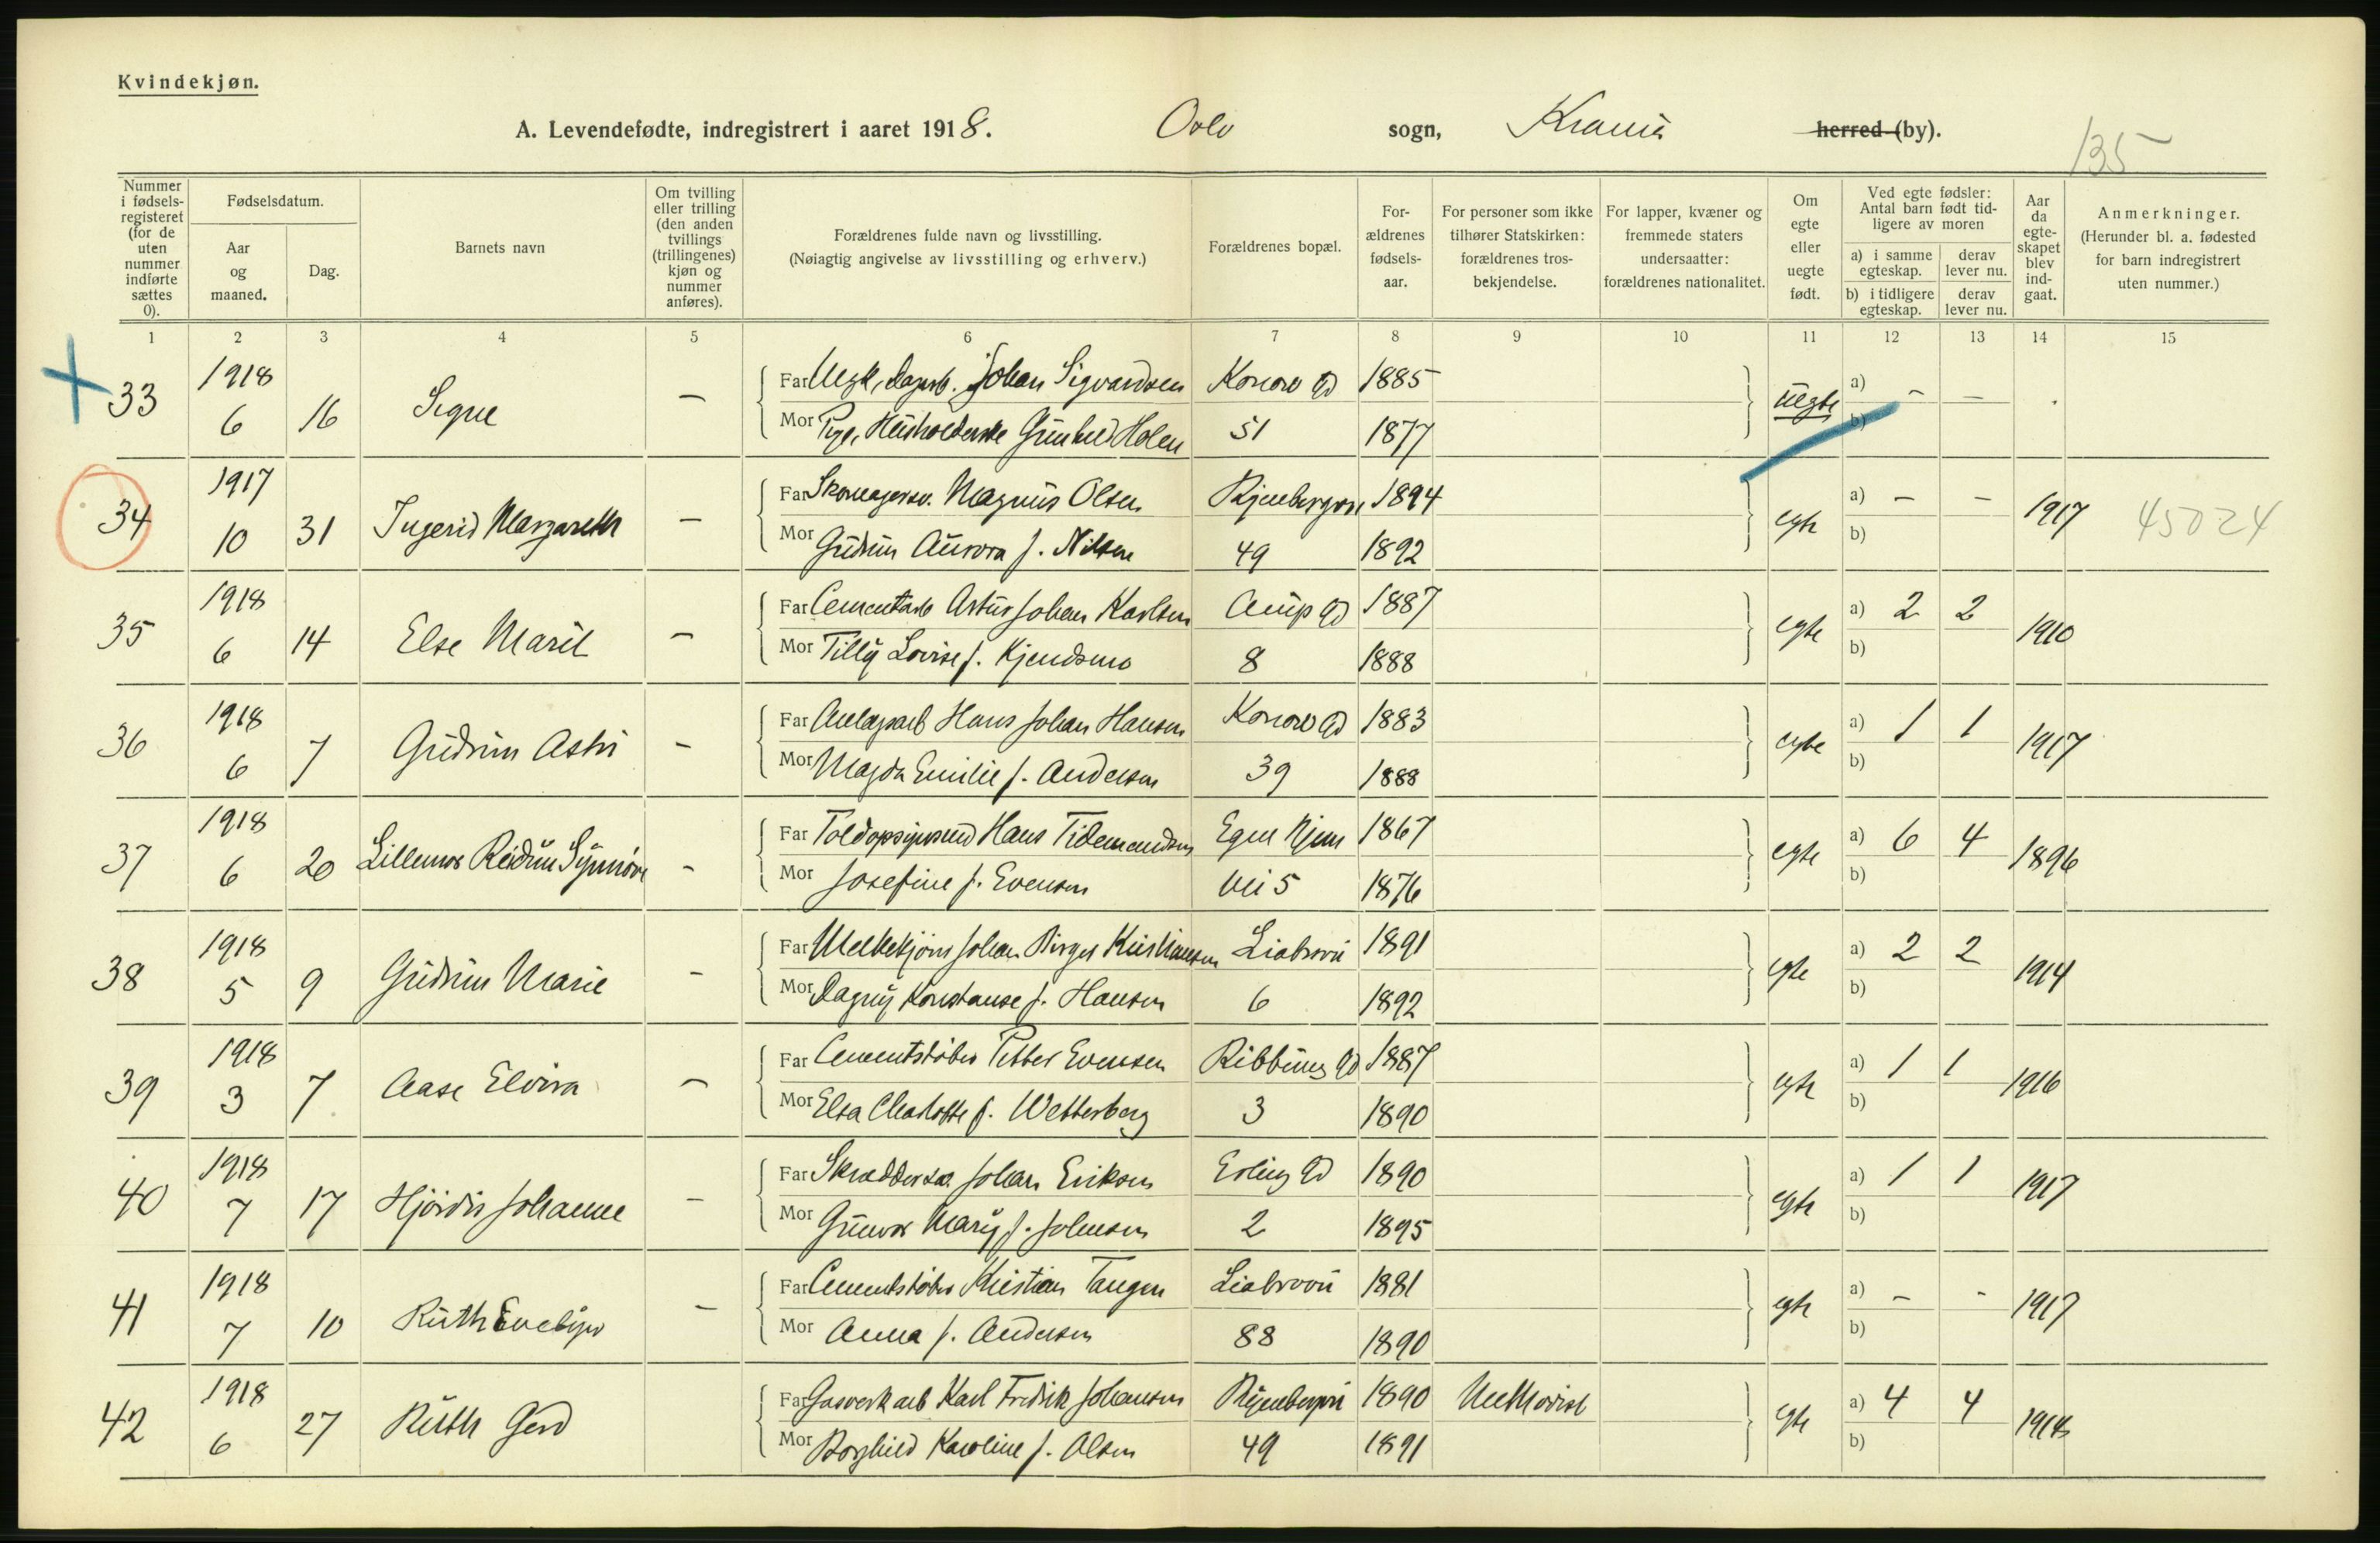 Kvindekjøn.
A. Levendefødte, indregistrert i aaret 1918. Oslo sogn, Krania herred (by).
135
Nummer i fødsels-registeret (for de uten nummer indførte sættes 0).
Fødselsdatum.
Aar og maaned.
Dag.
Barnets navn
Om tvilling eller trilling (den anden tvillings (trillingenes) kjøn og nummer anføres).
Forældrenes fulde navn og livsstilling.
(Nøiagtig angivelse av livsstilling og erhverv.)
Forældrenes bopæl.
For-ældrenes fødsels-aar.
For personer som ikke tilhører Statskirken: forældrenes tros-bekjendelse.
For lapper, kvæner og fremmede staters undersaatter: forældrenes nationalitet.
Om egte eller uegte født.
Ved egte fødsler: Antal barn født tid-ligere av moren
a) i samme egteskap.
derav lever nu.
b) i tidligere egteskap.
derav lever nu.
Aar da egte-skapet blev ind-gaat.
Anmerkninger.
(Herunder bl. a. fødested for barn indregistrert uten nummer.)
1 2 3 4 5 6 7 8 9 10 11 12 13 14 15
33 1918 6 16 Signe — Far Johan Sigvardsen Konows Gd 1885 uegte a) - —
Mor Pige, Husholderske Gunhild Holen 51 1877 b)
34 1917 10 31 Ingerid Margareth — Far Skomagersv. Magnus Olsen 1894 egte a) — — 1917 45024
Mor Gudrun Aurora f. Nilsen 49 1892 b)
35 1918 6 14 Else Marit — Far Cementarb Artur Johan Karlsen Gd 1887 egte a) 2 2 1910
Mor Tilly Lovise f. Kjendsmo 8 1888 b)
36 1918 6 7 Gudrun Astri - Far Anlægsarb Hans Johan Hansen Konows Gd 1883 egte a) 1 1 1917
Mor Magda Emilie f. Andersen 39 1888 b)
37 1918 6 20 Lillemor Reidun Synnøve - Far Hans Tidemandsen Egne Hjem 1867 egte a) 6 4 1896
Mor Josefine f. Evensen vei 5 1876 b)
38 1918 5 9 Gudrun Marie - Far Melkekjører Johan Birger Kristiansen Liabrovei 1891 egte a) 2 2 1914
Mor Dagny Konstanse f. Hansen 6 1892 b)
39 1918 3 7 Aase Elvira — Far Cementstøber Petter Evensen Ribbung Gd 1887 egte a) 1 1 1916
Mor Elsa Charlotte f. Wetterberg 3 1890 b)
40 1918 7 17 Hjördis Johanne - Far Skræddersv. Johan Eriksen Erling Gd 1890 egte a) 1 1 1917
Mor Gunvor Mary f. Johnsen 2 1895 b)
41 1918 7 10 Ruth - Far Cementstøber Kristian Tangen Liabrovei 1881 egte a) - - 1917
Mor Anna f. Andersen 88 1890 b)
42 1918 6 27 Ruth Gerd Far Gasverkarb Karl Fredrik Johansen 1890 Methodist egte a) 4 4
Mor Borghild Karoline f. Olsen 49 1891 b)